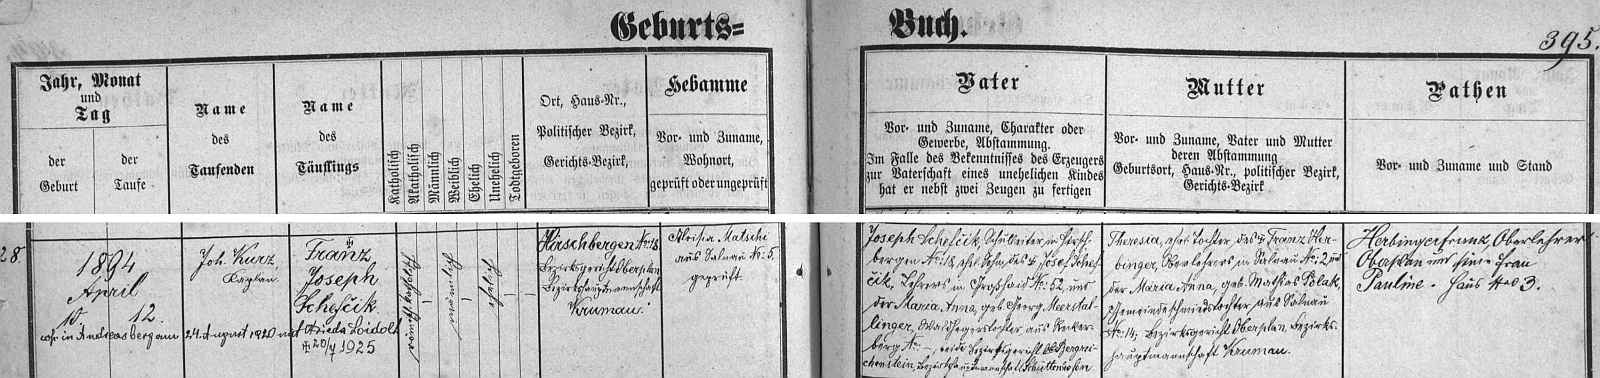 Geburts=
Buch.
395.
Jahr, Monat
und
Tag
der
Geburt
der
Taufe
Name
des
Taufenden
Name
des
Täuflings
Katholisch
Akatholisch
Männlich
Weiblich
Ehelich
Unehelich
Todtgeboren
Ort, Haus-Nr.,
Politischer Bezirk,
Gerichts-Bezirk,
Hebamme
Vor- und Zuname,
Wohnort,
geprüft oder ungeprüft
Vater
Vor- und Zuname, Charakter oder
Gewerbe, Abstammung.
Im Falle des Bekenntnisses des Erzeugers
zur Vaterschaft eines unehelichen Kindes
hat er nebst zwei Zeugen zu fertigen
Mutter
Vor- und Zuname, Vater und Mutter
deren Abstammung
Geburtsort, Haus-Nr., politischer Bezirk,
Gerichts-Bezirk
Pathen
Vor- und Zuname und Stand
28
1894
April
10. 12.
Joh. Kurz,
Kaplan.
Franz
Joseph
Schefčik.
cop. in Andreasberg am 24. August 1920 mit Frieda Loidolt
✠ 20/7 1925
römisch katholisch
männlich
ehelich
Hirschbergen No: 18
Bezirksgericht Oberplan
Bezirkshauptmannschaft
Krumau.
Aloisia Matschi
aus Salnau No: 5,
geprüft.
Joseph Schefčik, Schulleiter in Hirsch-
bergen No: 18, ehel. Sohn des ✠ Josef Schef-
čik, Lehrers in Großhaid No: 52, und
der Maria Anna, geb. Georg Merstal-
linger, Waldhegerstochter aus Recker-
berg No: –, beide Bezirksgericht Bergrei-
chenstein, Bezirkshauptmannschaft Schüttenhofen.
Theresia, ehel. Tochter des ✠ Franz Her-
binger, Oberlehrers in Salnau No: 2 und
der Maria Anna, geb. Mathias Polak,
Gemeindeschmiedstochter aus Salnau
No: 14, Bezirksgericht Oberplan, Bezirks-
hauptmannschaft Krumau.
Herbinger Franz, Oberlehrer
Oberplan und seine Frau
Pauline. Haus Nro 3.